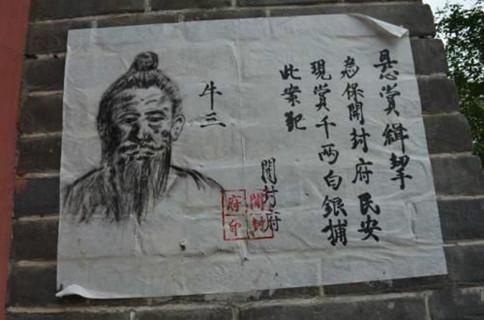 悬賞緝拏
為保開封府民安
現賞千两白銀捕
此案犯
牛三
開封府
開封
府印